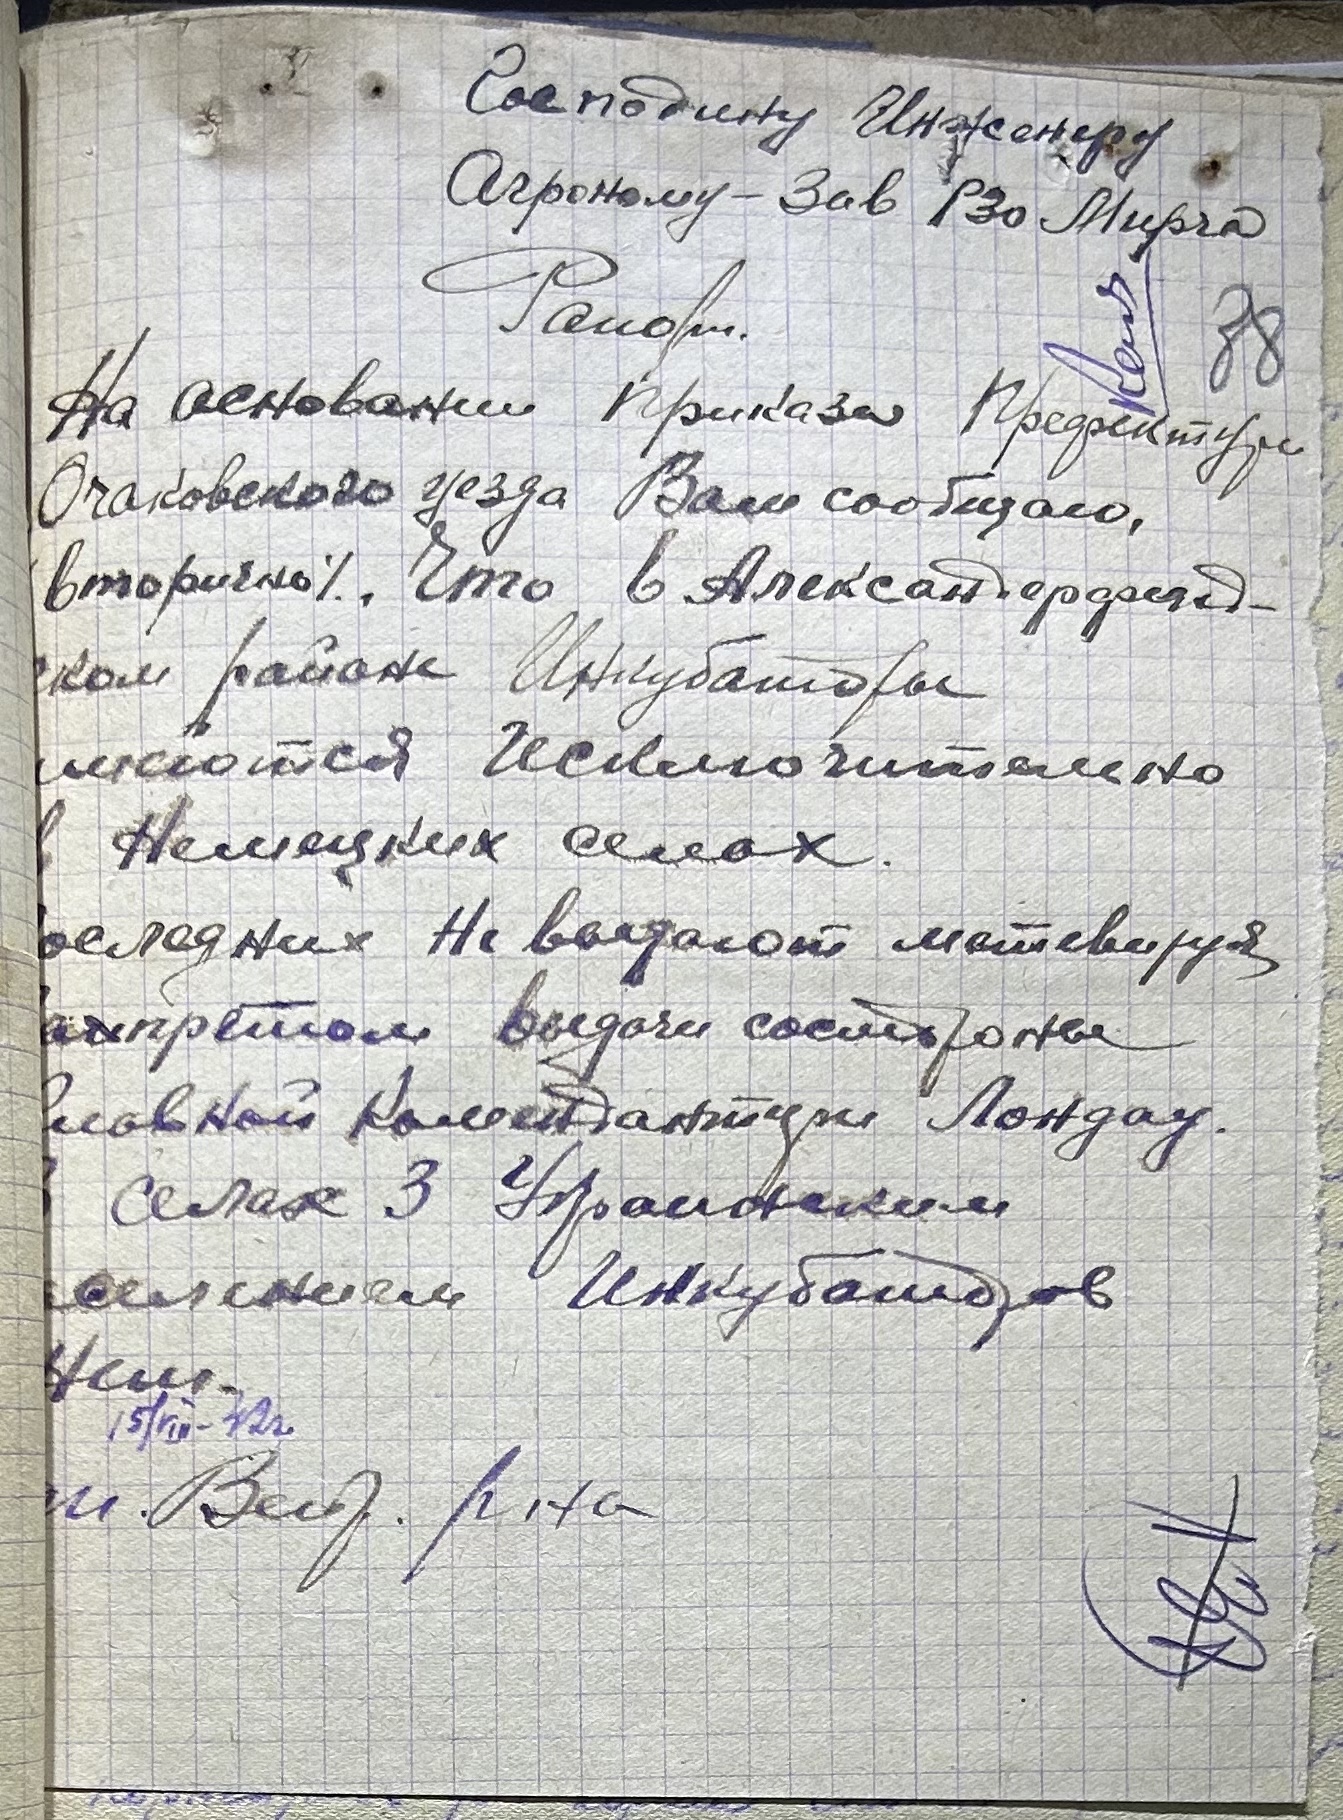 Господину Инженеру
Агроному - Зав РЗО Мирча
Рапорт.
38
На основании приказа Префектури
Очаковского уезда Вам сообщаю,
вторично/. Что в Александерфелд-
ском районе Инкубаторы
имеются Исключительно
в Немецких селах.
последних не выдают мотевируя
запретом выдачи состороны
Главной Комендантури Ландау.
В селах З Украинским
населением Инкубаторов
Нет.
15/VIII-42г.
т. Вет. р на